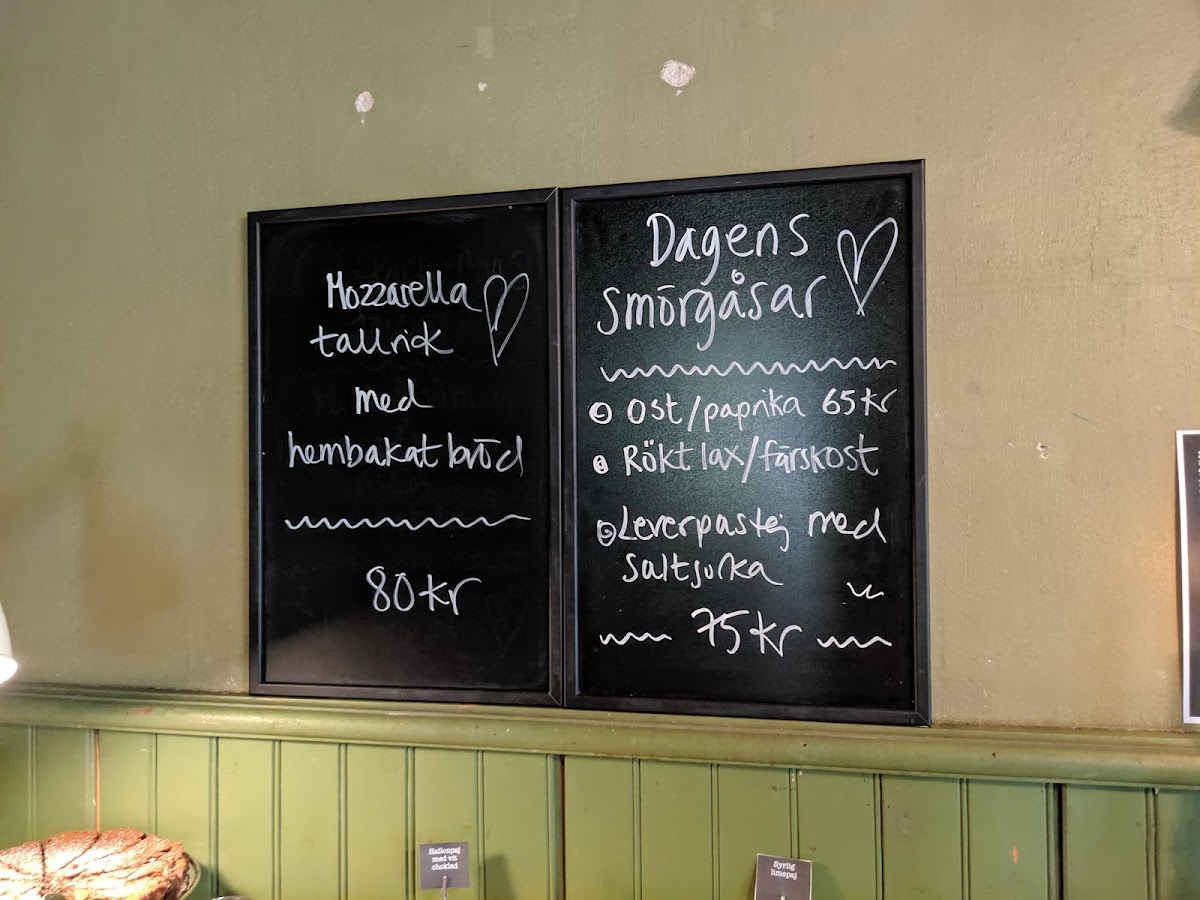 Mozzarella
tallrick
med
hembakat bröd
80 kr
Dagens
smörgåsar
Ost/paprika 65 kr
Rökt lax/färskost
Leverpastej med
saltgurka
75 kr
Hallonpaj
med vit
choklad
Syrlig
limepaj